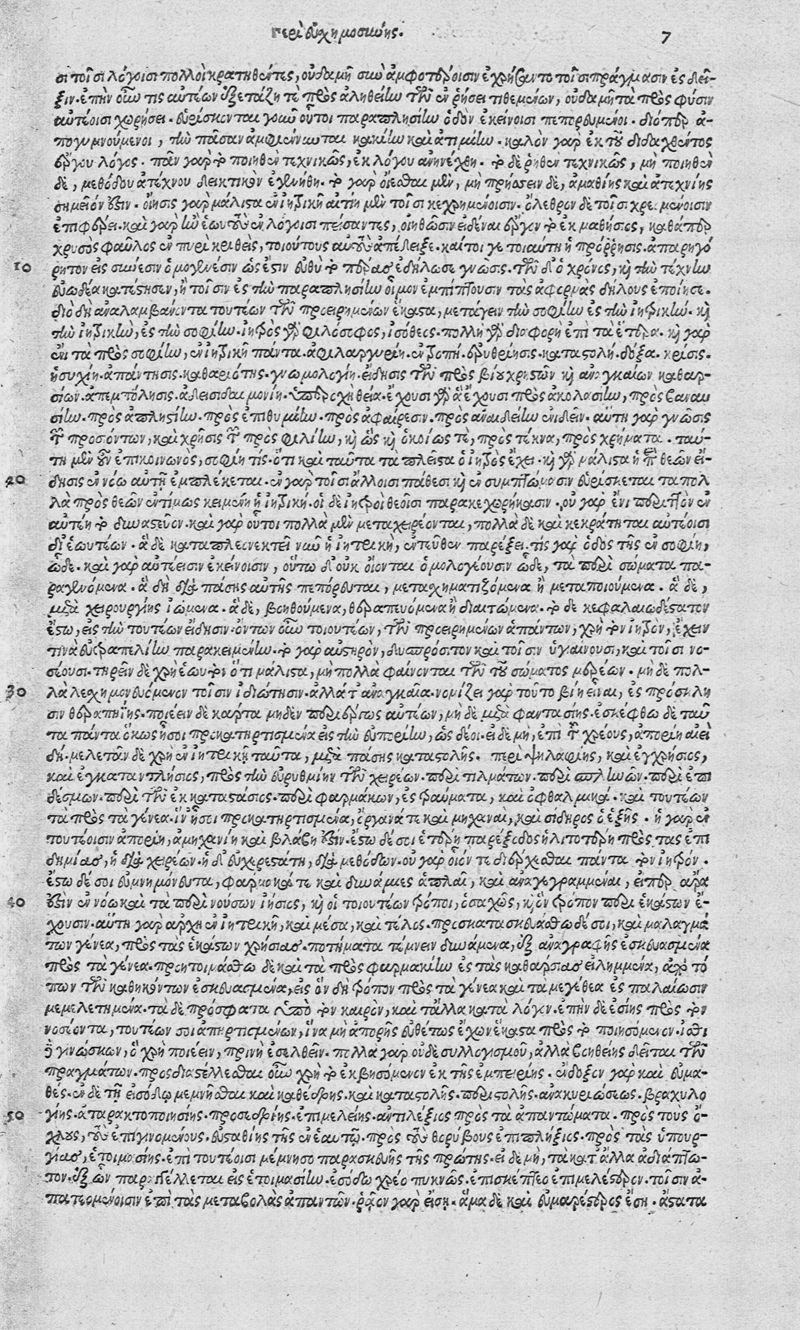 περὶ εὐχημοσύνης. 7
σι τοῖσι λόγοισι πολλοὶ κρατηθέντες, οὐδαμῆ συναμφοτέροισιν ἐχρήσαντο τοῖσι πρήγμασιν ἐς δεῖ-
ξιν. ἐπὴν οὖν τις αὐτέων ἐξετάζη τὸ πρὸς ἀληθείην τῶν ἐν ῥήσει τιθεμένων, οὐδαμῆ τὰ πρὸς φύσιν
αὐτέοισι χωρήσει. εὑρίσκονται γοῦν οὗτοι παραπλησίην ὁδὸν ἐκείνοισι πεπορευμένοι. διόπερ ἀ-
πογυμνούμενοι, τὴν πᾶσαν ἀμφιέννυνται κακίην καὶ ἀτιμίην. καλὸν γὰρ ἐκ τοῦ διδαχθέντος
ἔργου λόγος. πᾶν γὰρ τὸ ποιηθὲν τεχνικῶς, ἐκ λόγου ἀνηνέχθη. τὸ δὲ ῥηθὲν τεχνικῶς, μὴ ποιηθὲν
δὲ, μεθόδου ἀτέχνου δεικτικὸν ἐγενήθη. τὸ γὰρ οἴεσθαι μὲν, μὴ πρήσσειν δὲ, ἀμαθίης καὶ ἀτεχνίης
σημεῖόν ἐστιν. οἴησις γὰρ μάλιστα ἐν ἰητρικῇ αἰτίην μὲν τοῖσι κεχρημένοισιν. ὄλεθρον δὲ τοῖσι χρεομένοισιν
ἐπιφέρει. καὶ γὰρ ἢν ἑωυτοὺς ἐν λόγοισι πείσαντες, οἰηθῶσιν εἰδέναι ἔργον τὸ ἐκ μαθήσιος, καθάπερ
χρυσὸς φαῦλος ἐν πυρὶ κριθεὶς, τοιούτους αὐτοὺς ἀπέδειξε. καίτοι γε τοιαύτη ἡ πρόρρησις. ἀπαρηγό
10 ρητον εἰς σύνεσιν ὁμογενέσιν ὥς ἐστιν εὐθὺ τὸ πέρας ἐδήλωσε γνῶσις. τῶν δ' ὁ χρόνος, καὶ τὴν τέχνην
εὐωδέα κατέστησεν, ἢ τοῖσιν ἐς τὴν παραπλησίην οἶμον ἐμπίπτουσιν τὰς ἀφορμὰς δήλους ἐποίησε.
διὸ δὴ ἀναλαμβάνοντα τουτέων τῶν προειρημένων ἕκαστα, μετάγειν τὴν σοφίην ἐς τὴν ἰητρικὴν. καὶ
τὴν ἰητρικὴν, ἐς τὴν σοφίην. ἰητρὸς γὰρ φιλόσοφος, ἰσόθεος. πολλὴ γὰρ διαφορὴ ἐπὶ τὰ ἕτερα. καὶ γὰρ
ἔνι τὰ πρὸς σοφίην, ἐν ἰητρικῇ πάντα. ἀφιλαργυρίη. ἐντροπή. ἐρυθρίησις. καταστολή. δόξα. κρίσις.
ἡσυχίη. ἀπάντησις. καθαριότης. γνωμολογίη. εἴδησις τῶν πρὸς βίον χρηστῶν καὶ ἀναγκαίων καθαρ-
σίων. ἀπεμπόλησις. ἀδεισιδαιμονίη. ὑπεροχὴ θεία. ἔχουσι γὰρ ἃ ἔχουσι πρὸς ἀκολασίην, πρὸς βαναυ
σίην. πρὸς ἀπλησίην. πρὸς ἐπιθυμίην. πρὸς ἀφαίρεσιν. πρὸς ἀναιδείην ἐνιδεῖν. αὕτη γὰρ γνῶσις
τῶν προσόντων, καὶ χρῆσις τῶν πρὸς φιλίην, καὶ ὡς καὶ ὁκοίως τὲ, πρὸς τέκνα, πρὸς χρήματα. ταύ-
τῃ μὲν οὖν ἐπικοινωνὸς, σοφίη τίς. ὅτι καὶ ταῦτα τὰ πλεῖστα ὁ ἰητρὸς ἔχει. καὶ γὰρ μάλιστα ἡ περὶ θεῶν εἴ-
20 δησις ἐν νόῳ αὐτῇ ἐμπλέκεται. ἐν γὰρ τοῖσιν ἄλλοισι πάθεσι καὶ ἐν συμπτώμασιν εὑρίσκεται τὰ πολ
λὰ πρὸς θεῶν ἐντίμως κειμένη ἡ ἰητρική. οἱ δὲ ἰητροὶ θεοῖσι παρακεχωρήκασιν. οὐ γὰρ ἔνι περιττὸν ἐν
αὐτέῃ τὸ δυναστεῦον. καὶ γὰρ οὗτοι πολλὰ μὲν μεταχειρέονται, πολλὰ δὲ καὶ κεκράτηται αὐτέοισι
δι' ἑωυτέων. ἃ δὲ καταπλεονεκτεῖ νῦν ἡ ἰητρικὴ, ἐντεῦθεν παρέξει. τὶς γὰρ ὁδὸς τῆς ἐν σοφίῃ,
ὧδε. καὶ γὰρ αὐτέοισιν ἐκείνοισιν, οὕτω δ' οὐκ οἴονται ὁμολογέουσιν ὧδε, τὰ περὶ σώματα πα-
ραγινόμενα. ἃ δὴ διὰ πάσης αὐτῆς πεπόρευται, μετασχηματιζόμενα ἢ μεταποιούμενα. ἃ δὲ,
μετὰ χειρουργίης ἰώμενα. ἃ δὲ, βοηθούμενα, θεραπευόμενα ἢ διαιτώμενα. τὸ δὲ κεφαλαιωδέστατον
ἔστω, εἰς τὴν τουτέων εἴδησιν. ὄντων οὖν τοιουτέων, τῶν προειρημένων ἁπάντων, χρὴ τὸν ἰητρὸν, ἔχειν
τινὰ εὐτραπελίην παρακειμένην. τὸ γὰρ αὐστηρὸν, δυσπρόσιτον καὶ τοῖσιν ὑγιαίνουσι, καὶ τοῖσι νο-
σέουσι. τηρεῖν δὲ χρὴ ἑωυτὸν ὅτι μάλιστα, μὴ πολλὰ φαίνονται τῶν τοῦ σώματος μερέων. μὴ δὲ πολ-
30 λὰ λεσχηνευόμενον τοῖσιν ἰδιώτῃσιν. ἀλλὰ τ' ἀναγκαῖα. νομίζει γὰρ τοῦτο βίῃ εἶναι, ἐς πρόσκλη
σιν θεραπηΐης. ποιέειν δὲ κάρτα μηδὲν περιέργως αὐτέων, μὴ δὲ μετὰ φαντασίης. ἐσκέφθω δὲ ταῦ
τα πάντα ὅκως ᾖ σοι προκατηρτισμένα εἰς τὴν εὐπορίην, ὡς δέοι. εἰ δὲ μὴ, ἐπὶ τοῦ χρέους, ἀπορίη αἰεὶ
δή. μελετᾶν δὲ χρὴ ἐν ἰητρικῇ ταῦτα, μετὰ πάσης καταστολῆς. περὶ ψηλαφίης, καὶ ἐγχρίσιος,
καὶ ἐγκαταντλήσιος, πρὸς τὴν εὐρυθμίην τῶν χειρέων. περὶ τιλμάτων. περὶ σπληνῶν. περὶ ἐπι
δέσμων. περὶ τῶν ἐκ καταστάσιος. περὶ φαρμάκων, ἐς τραύματα, καὶ ὀφθαλμικά. καὶ τουτέων
τὰ πρὸς τὰ γένεα. ἵν' ᾖ σοι προκατηρτισμένα, ὄργανά τε καὶ μηχαναὶ, καὶ σίδηρος ὁ ἑξῆς. ἡ γὰρ ἐν
τουτέοισιν ἀπορίη, ἀμηχανίη καὶ βλάβη ἐστίν. ἔστω δέ σοι ἑτέρη παρέξοδος ἡ λιτοτέρη πρὸς τὰς ἐπι
δημίας, ἡ διὰ χειρέων. ἡ δ' εὐχερεστάτη, διὰ μεθόδων. οὐ γὰρ οἷόν τε διέρχεσθαι πάντα τὸν ἰητρόν.
ἔστω δέ σοι εὐμνημόνευτα, φάρμακά τε καὶ δυνάμιες ἁπλαῖ, καὶ ἀναγεγραμμέναι, εἴπερ ἄρα
40 ἐστὶν ἐν νόῳ καὶ τὰ περὶ νούσων ἰήσιος, καὶ οἱ τουτέων τρόποι, ὁσαχῶς, καὶ ὃν τρόπον περὶ ἑκάστων ἔ-
χουσιν. αὕτη γὰρ ἀρχὴ ἐν ἰητρικῇ, καὶ μέσα, καὶ τέλος. προκατασκευάσθω δέ σοι, καὶ μαλαγμά
των γένεα, πρὸς τὰς ἑκάστων χρήσιας. ποτήματα τέμνειν δυνάμενα, ἐξ ἀναγραφῆς ἐσκευασμένα
πρὸς τὰ γένεα. προητοιμάσθω δὲ καὶ τὰ πρὸς φαρμακίην ἐς τὰς καθάρσιας εἰλημμένα, ἀπὸ τό
πων τῶν καθηκόντων ἐσκευασμένα, εἰς ὃν δὴ τρόπον πρὸς τὰ γένεα καὶ τὰ μεγέθεα ἐς παλαίωσιν
μεμελετημένα. τὰ δὲ πρόσφατα ὑπὸ τὸν καιρὸν, καὶ τἄλλα κατὰ λόγον. ἐπὴν δὲ ἐσίῃς πρὸς τὸν
νοσέοντα, τουτέων σοι ἀπηρτισμένων, ἵνα μὴ ἀπορῇς εὐθέτως ἔχων ἕκαστα πρὸς τὸ ποιησόμενον. ἴσθι
γινώσκων, ὃ χρὴ ποιέειν, πρινὴ ἐσελθεῖν. πολλὰ γὰρ οὐδὲ συλλογισμοῦ, ἀλλὰ βοηθείης δεῖται τῶν
πραγμάτων. προσδιαστέλλεσθαι οὖν χρὴ τὸ ἐκβησόμενον ἐκ τῆς ἐμπειρίης. ἔνδοξον γὰρ καὶ εὐμα-
θές. ἐν δὲ τῇ ἐσόδῳ μεμνῆσθαι καὶ καθέδρης. καὶ καταστολῆς. περιστολῆς. ἀνακυριώσεως. βραχυλο
50 γίης. ἀταρακτοποιησίης. προσεδρίης. ἐπιμελείης. ἀντιλέξιος πρὸς τὰ ἀπαντώματα. πρὸς τοὺς ὄ-
χλους, τοὺς ἐπιγινομένους. εὐσταθίης τῆς ἐν ἑαυτῷ. πρὸς τοὺς θορύβους ἐπιπλήξιος. πρὸς τὰς ὑπουρ-
γίας, ἑτοιμασίης. ἐπὶ τουτέοισι μέμνησο παρασκευῆς τῆς πρώτης. εἰ δὲ μὴ, τὰ κατ' ἄλλα ἀδιάπτω-
τον. ἐξ ὧν παραγγέλλεται εἰς ἑτοιμασίην. ἐσόδῳ χρέο πυκνῶς. ἐπισκέπτεο ἐπιμελέστερον. τοῖσιν ἀ-
πατεομένοισιν ἐπὶ τὰς μεταβολὰς ἀπαντῶν. ῥᾷον γὰρ εἴσῃ. ἅμα δὲ καὶ εὐμαρέστερος ἔσῃ. ἄστατα